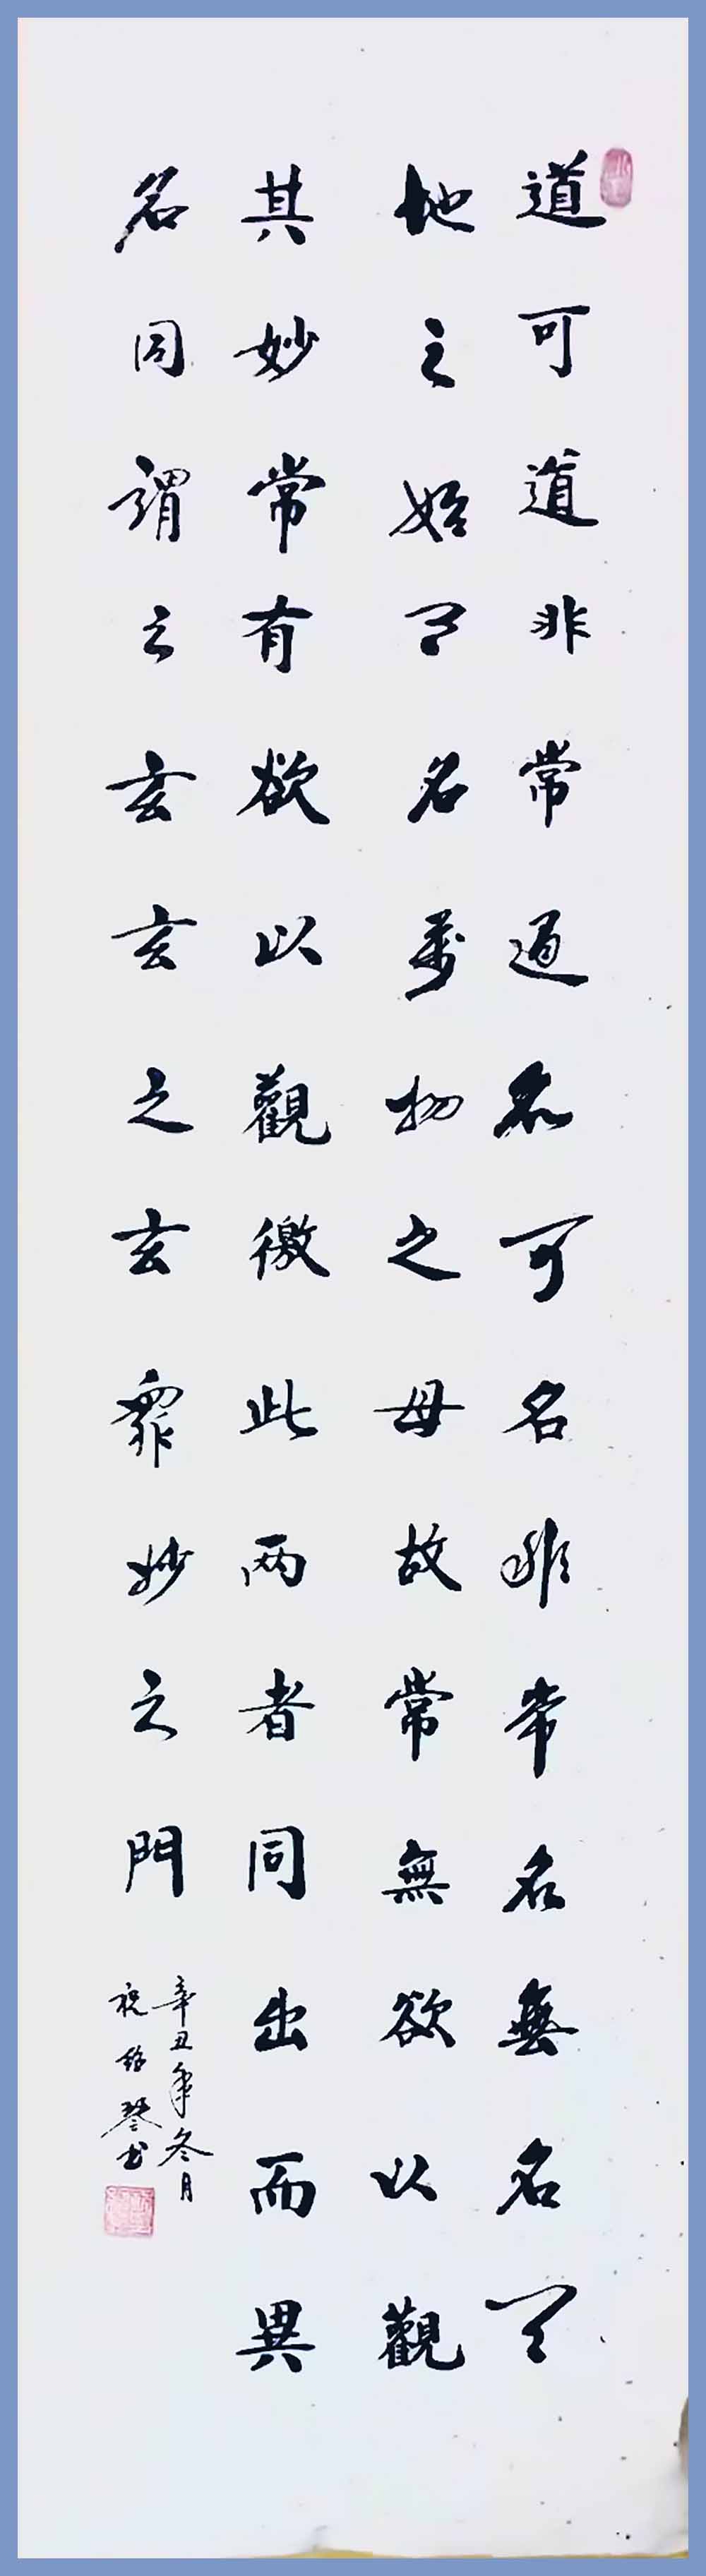 道可道非常道名可名非常名無名天
地之始有名萬物之母故常無欲以觀
其妙常有欲以觀徼此两者同出而異
名同謂之玄玄之玄眾妙之門
辛丑年冬月
祝
琴书